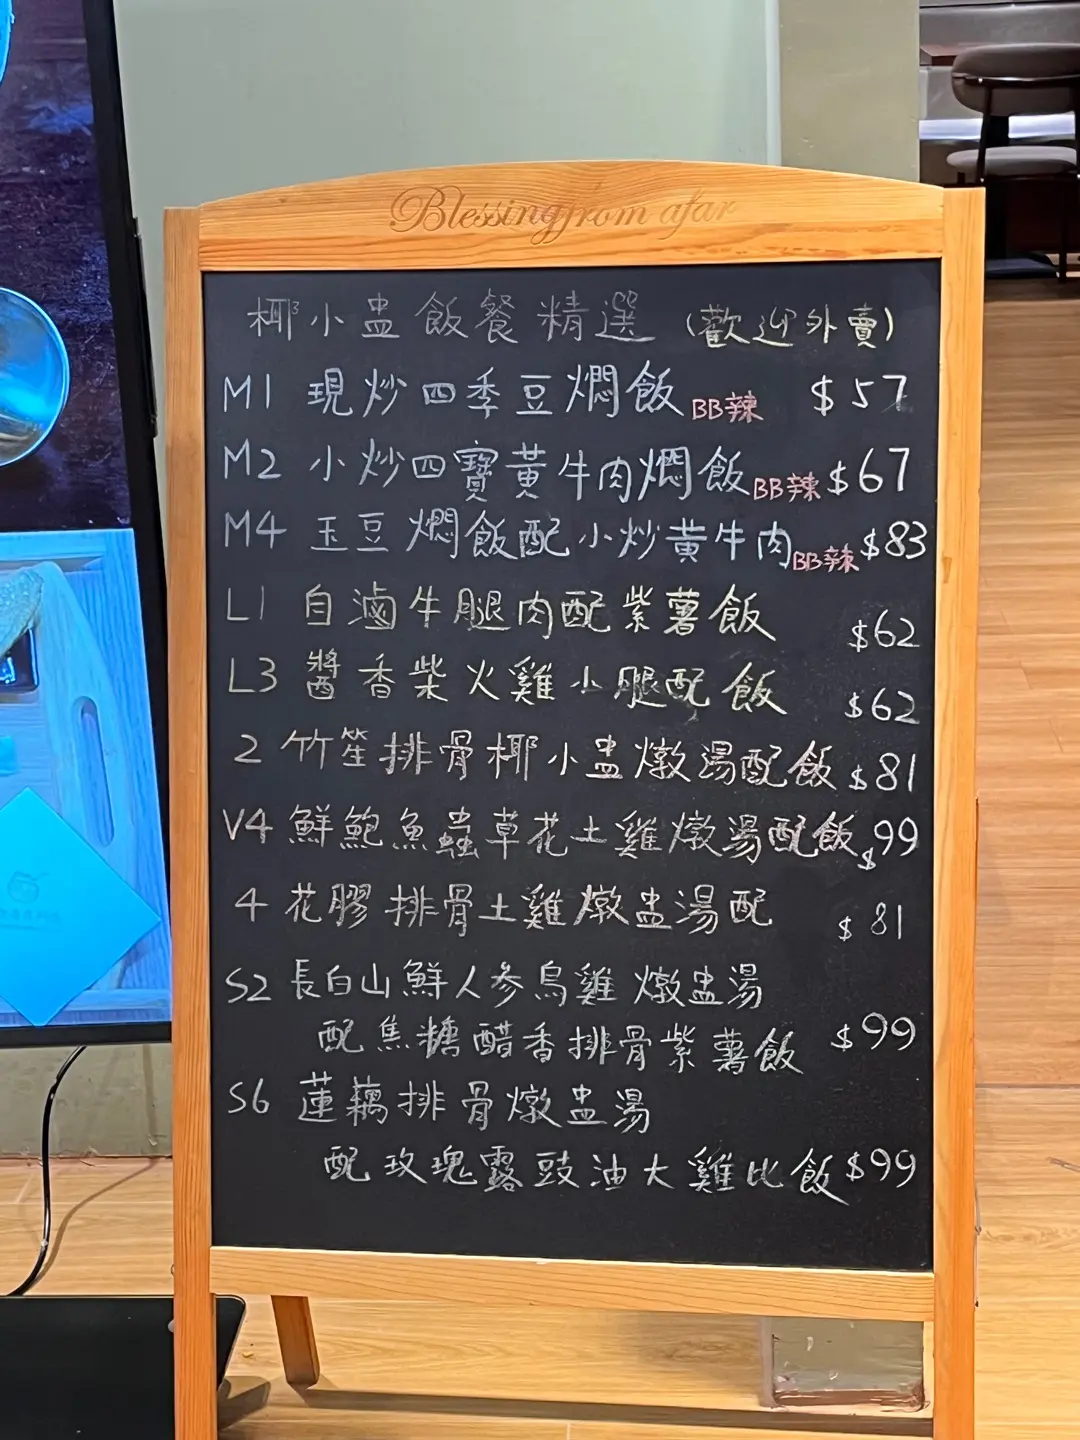 Blessing from afar
椰小盅飯餐精選 (歡迎外賣)
M1 現炒四季豆燜飯 BB辣 $57
M2 小炒四寶黃牛肉燜飯 BB辣 $67
M4 玉豆燜飯配小炒黃牛肉 BB辣 $83
L1 自滷牛腿肉配紫薯飯 $62
L3 醬香柴火雞小腿配飯 $62
2 竹笙排骨椰小盅燉湯配飯 $81
V4 鮮鮑魚蟲草花土雞燉湯配飯 $99
4 花膠排骨土雞燉盅湯配 $81
S2 長白山鮮人参烏雞燉盅湯
配焦糖醋香排骨紫薯飯 $99
S6 蓮藕排骨燉盅湯
配玫瑰露豉油大雞比飯 $99